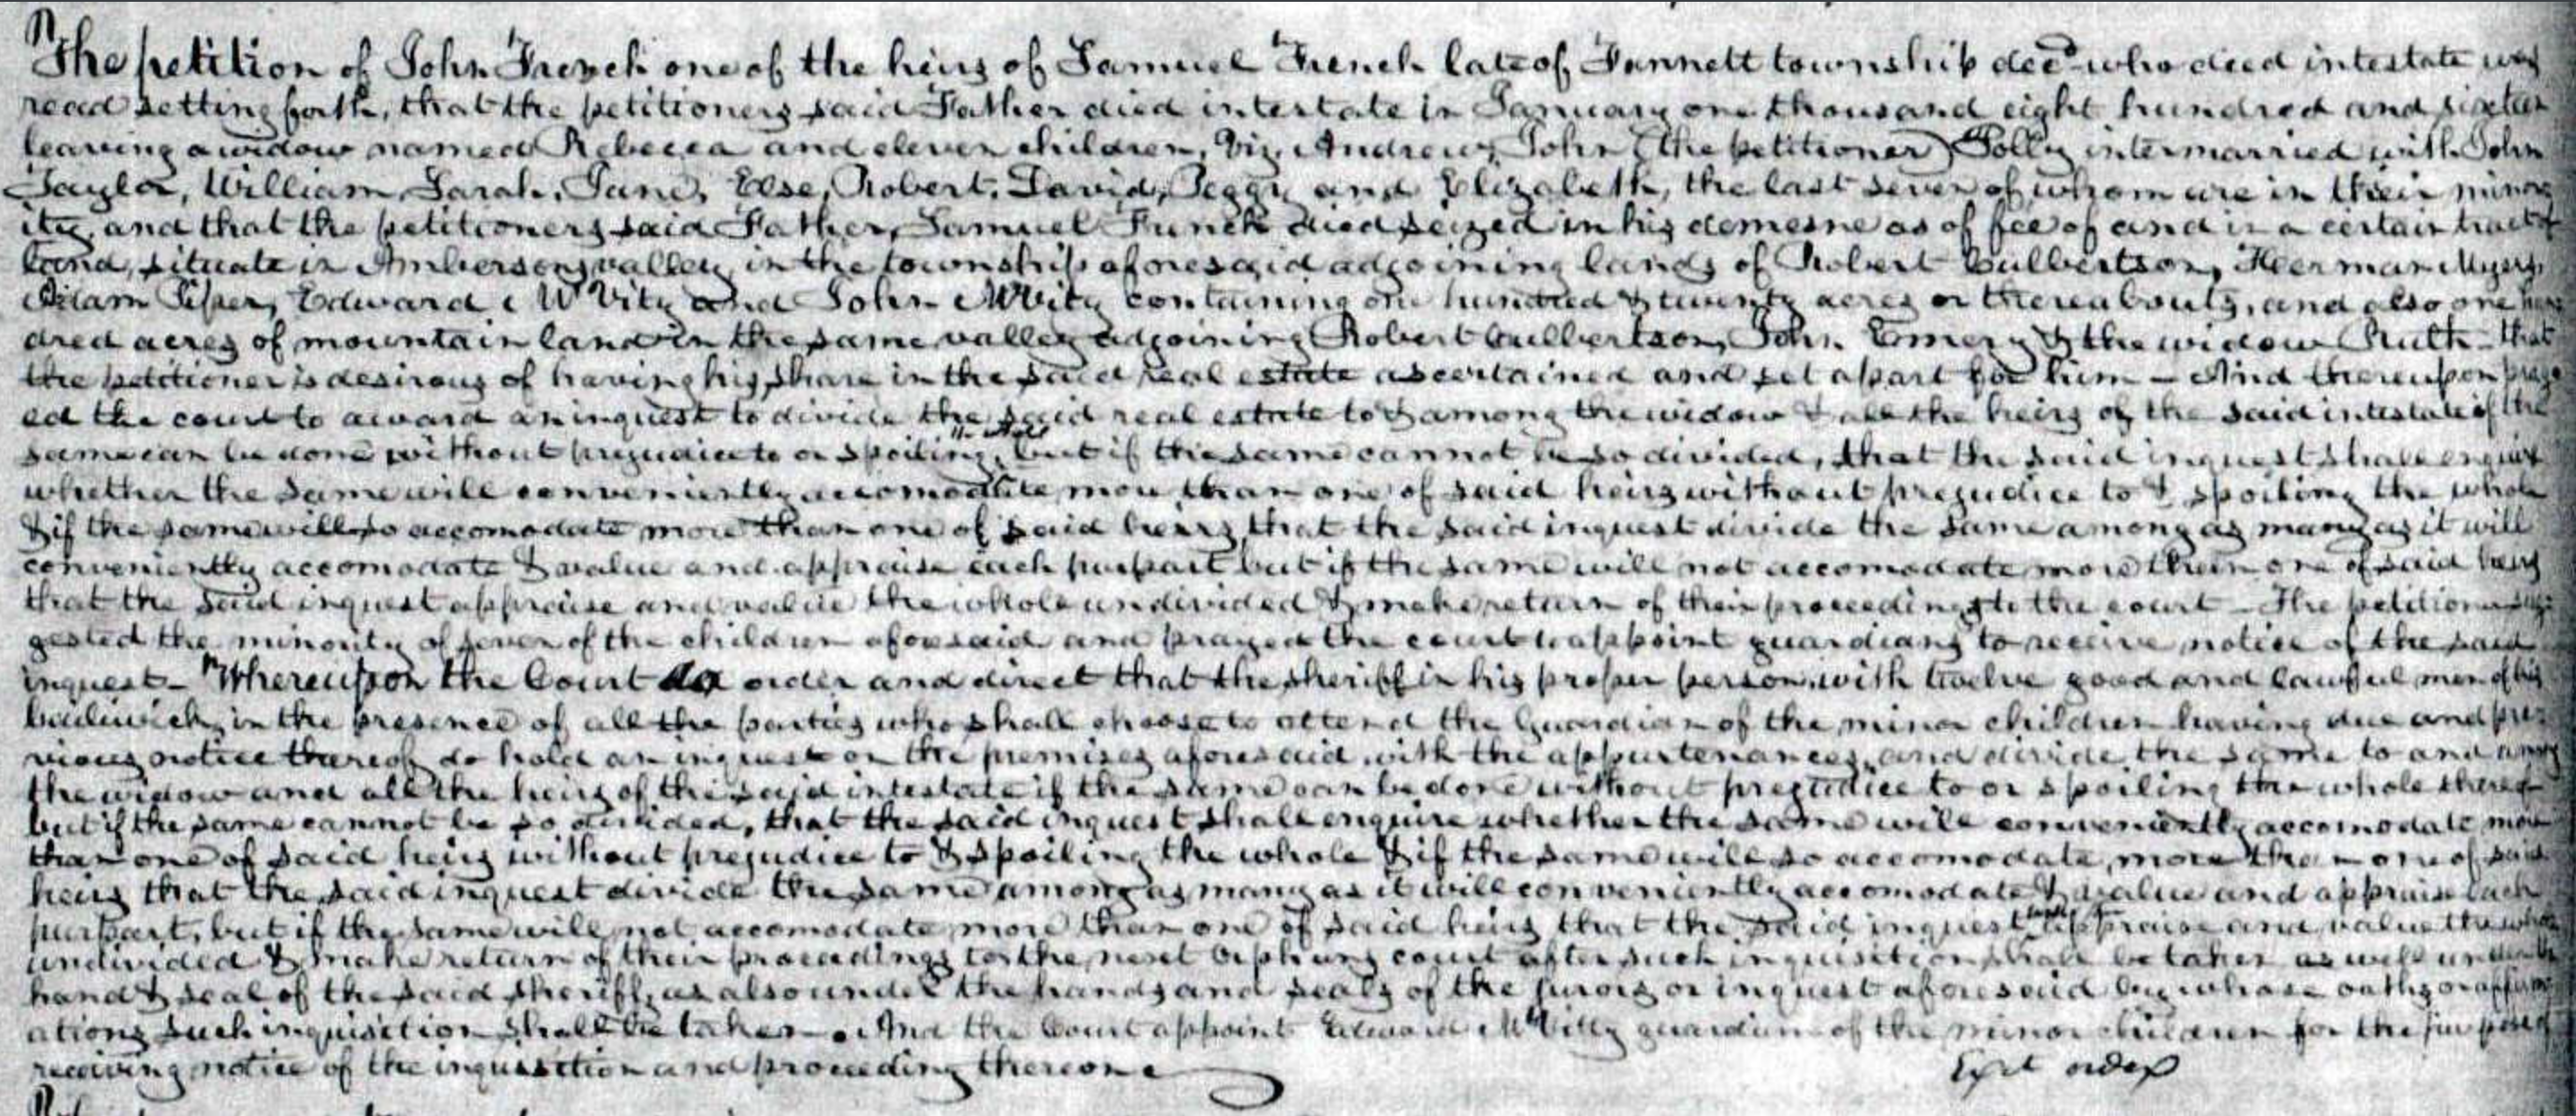 The petition of John French one of the heirs of Samuel French late of Fannett township decd who died intestate was
read setting forth, that the petitioners said Father died intestate in January one thousand eight hundred and sixteen
leaving a widow named Rebecca and eleven children, Viz. Andrew, John (the petitioner) Polly intermarried with John
Taylor, William, Sarah, Jane, Else, Robert, David, Peggy and Elizabeth, the last seven of whom are in their minor
ity, and that the petitioners said Father, Samuel French died seized in his demesne as of fee of and in a certain tract of
land, situate in Ambersons valley, in the township aforesaid adjoining lands of Robert Culbertson, Herman Myers,
Adam Piper, Edward McVity and John McVity containing one hundred & twenty acres or thereabouts, and also one hun
dred acres of mountain land in the same valley adjoining Robert Culbertson, John Emery & the widow Ruth - that
the petitioner is desirous of having his share in the said real estate ascertained and set apart for him - And thereupon pray
ed the court to award an inquest to divide the said real estate to & among the widow & all the heirs of the said intestate if the
same can be done without prejudice to or spoiling the whole, but if the same cannot be so divided, that the said inquest shall enquire
whether the same will conveniently accomodate more than one of said heirs without prejudice to & spoiling the whole
& if the same will so accomodate more than one of said heirs, that the said inquest divide the same among as many as it will
conveniently accomodate & value and appraise each purpart but if the same will not accomodate more than one of said heirs
that the said inquest appraise and value the whole undivided & make return of their proceedings to the court - The petitioner sug
gested the minority of seven of the children aforesaid and prayed the court to appoint guardians to receive notice of the said
inquest - Whereupon the Court do order and direct that the sheriff in his proper person with twelve good and lawful men of his
bailiwick, in the presence of all the parties who shall choose to attend the Guardian of the minor children having due and pre
vious notice thereof do hold an inquest on the premises aforesaid with the appurtenances, and divide the same to and among
the widow and all the heirs of the said intestate if the same can be done without prejudice to or spoiling the whole thereof
but if the same cannot be so divided, that the said inquest shall enquire whether the same will conveniently accomodate more
than one of said heirs without prejudice to & spoiling the whole & if the same will so accomodate, more than one of said
heirs that the said inquest divide the same among as many as it will conveniently accomodate & value and appraise each
purpart, but if the same will not accomodate more than one of said heirs that the said inquest appraise and value the whole
undivided & make return of their proceedings to the next Orphans court after such inquisition shall be taken as well under the
hand & seal of the said sheriff, as also under the hands and seals of the jurors or inquest aforesaid by whose oaths or affirm
ations such inquisition shall be taken. And the Court appoint Edward McVitty guardian of the minor children for the purpose of
receiving notice of the inquisition and proceeding thereon
Exit order